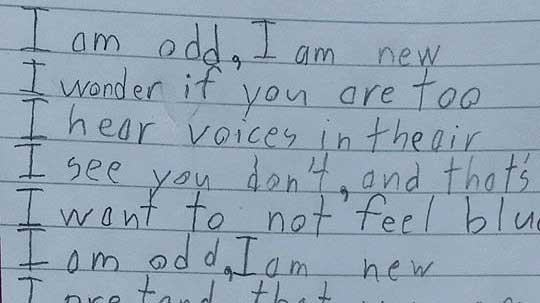 I am odd, I am new
I wonder if you are too
I hear voices in the air
I see you don't, and that's
I want to not feel blue
I am odd, I am new
I pretend that